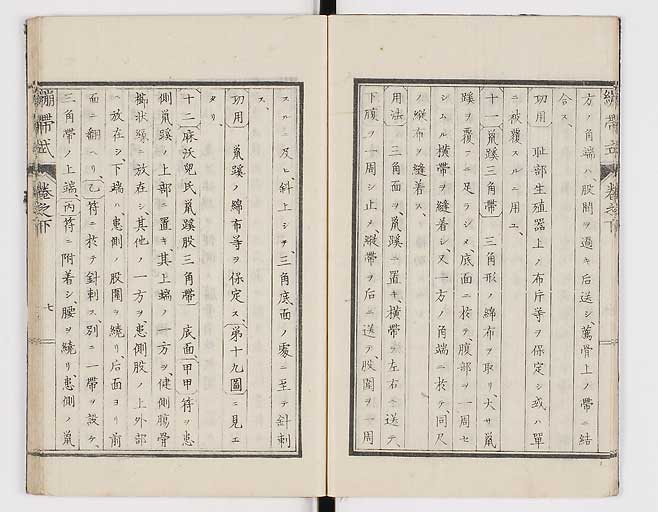 繃帶式 卷之下
方ノ角端ハ、股間ヲ過キ后送シ、薦骨上ノ帶ニ結
合ス、
功用 耻部生殖器上ノ布片等ヲ保定シ或ハ單
ニ被覆スルニ用ユ、
十一鼠蹊三角帶 三角形ノ綿布ヲ取リ、大サ鼠
蹊ヲ覆フニ足ラシメ、底面ニ於テ、腹部ヲ一周セ
シムル横帶ヲ縫着シ、又一方ノ角端ニ於テ、同尺
ノ縱布ヲ縫着ス、
用法 三角面ヲ、鼠蹊ニ置キ、横帶ヲ左右ニ送テ、
下腹ヲ一周シ止メ、縱帶ヲ后ニ送テ、股間ヲ一周
スルニ及ヒ、斜上シテ、三角底面ノ處ニ至テ針刺
ス、
功用 鼠蹊ノ綿布等ヲ保定ス、第十九圖ニ見エ
タリ、
十二麻沃兒氏鼠蹊股三角帶 底面甲甲符ヲ患
側鼠蹊ノ上部ニ置キ其上端ノ一方ヲ、健側腸骨
櫛狀縁ニ放在シ其他ノ一方ヲ、患側股ノ上外部
ニ放在シ、下端ハ、患側ノ股圍ヲ繞リ、后面ヨリ前
面ニ翻ヘリ、乙符ニ於テ針刺ス、別ニ一帶ヲ設ケ、
三角帶ノ上端、丙符ニ附着シ、腰ヲ繞リ、患側ノ鼠
繃帶式 卷之下 七